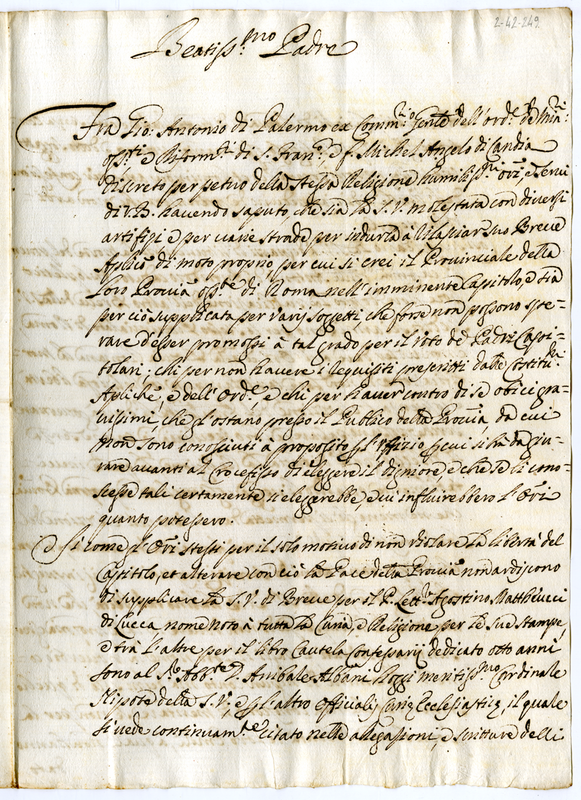 2-42-249
Beatiss:mo Padre
Fra Gio: Antonio di Palermo ex Comm:rio Gen:le dell'ord:e de Min:i
oss:ti e Riform:ti di S. Fran:co e f. Michel Angelo di Candia
discreto perpetuo della stessa Religione humiliss:mi ori e servi
di V.B. havendo saputo, che sia la S.V. molestata con diversi
artifizi e per varie strade per indurla à rilasciar suo Breve
Apлico di moto proprio per cui si crei il Provinciale della
loro Provia oss:te di Roma nell'imminente Capitolo, e sia
per ciò supplicata per varij soggetti, che forse non possono spe-
rare d'esser promossi à tal grado per il voto de Padri Capi-
tolari; chi per non havere i requisiti prescritti dalle Costitu:ni
Apliche, e dell'Ord:e, e chi per haver contro di se obici gra-
vissimi, che gl'ostano presso il Publico della Provia, da cui
non sono conosciuti à proposito p l'uffizio p cui si hà da giu-
rare avanti al Crocefisso di eleggere il digniore, e che se li cono-
scesse tali certamente si eleggerebbe, e vi influirebbero l'Ori
quanto potessero.
Si come gl'Ori stessi per il solo motivo di non violare la libertà del
Capitolo, et alterare con ciò la Pace della Provia non ardiscono
di supplicare la S.V. di Breve per il P. Lett:r Agostino Mattheucci
di Lucca nome noto à tutta la Curia, e Religione per le sue stampe,
e trà l'altre per il libro Cautela Confessarij dedicato otto anni
sono al Sr Abb:te D. Anibale Albani hoggi meritiss:mo Cardinale
Nipote della S.V. e p l'altro Officialis Curiæ Ecclesiasticæ, il quale
si vede continuam:te citato nelle allegazioni, e scritture delli